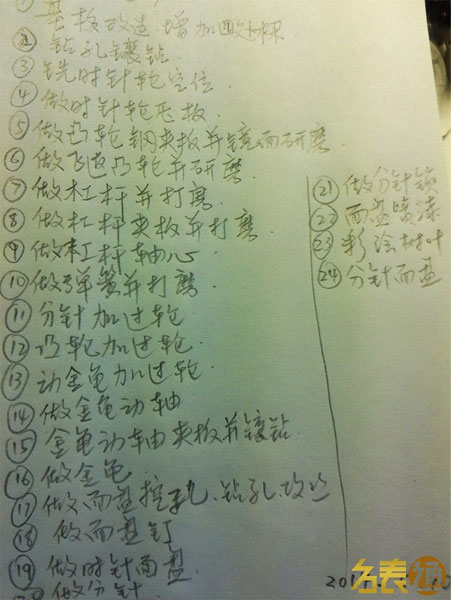 ① 基板改造增加四处桥
② 钻孔镶钻.
③ 铣时针轮空位.
④ 做时针轮压板
⑤ 做凸轮钢夹板并镜面研磨.
⑥ 做飞返凸轮并研磨.
⑦ 做杠杆并打磨.
⑧ 做杠杆夹板并打磨.
⑨ 做杠杆轴心
⑩ 做弹簧并打磨.
⑪ 分针加过轮
⑫ 凸轮加过轮.
⑬ 动金龟加过轮.
⑭ 做金龟动轴
⑮ 金龟动轴夹板并镶钻.
⑯ 做金龟.
⑰ 做面盘挖孔、钻孔、攻丝
⑱ 做面盘钉
⑲ 做时针面盘.
做分针
㉑ 做分针锁
㉒ 面盘喷漆
㉓ 彩绘树叶
㉔ 分针面盘
名表坊